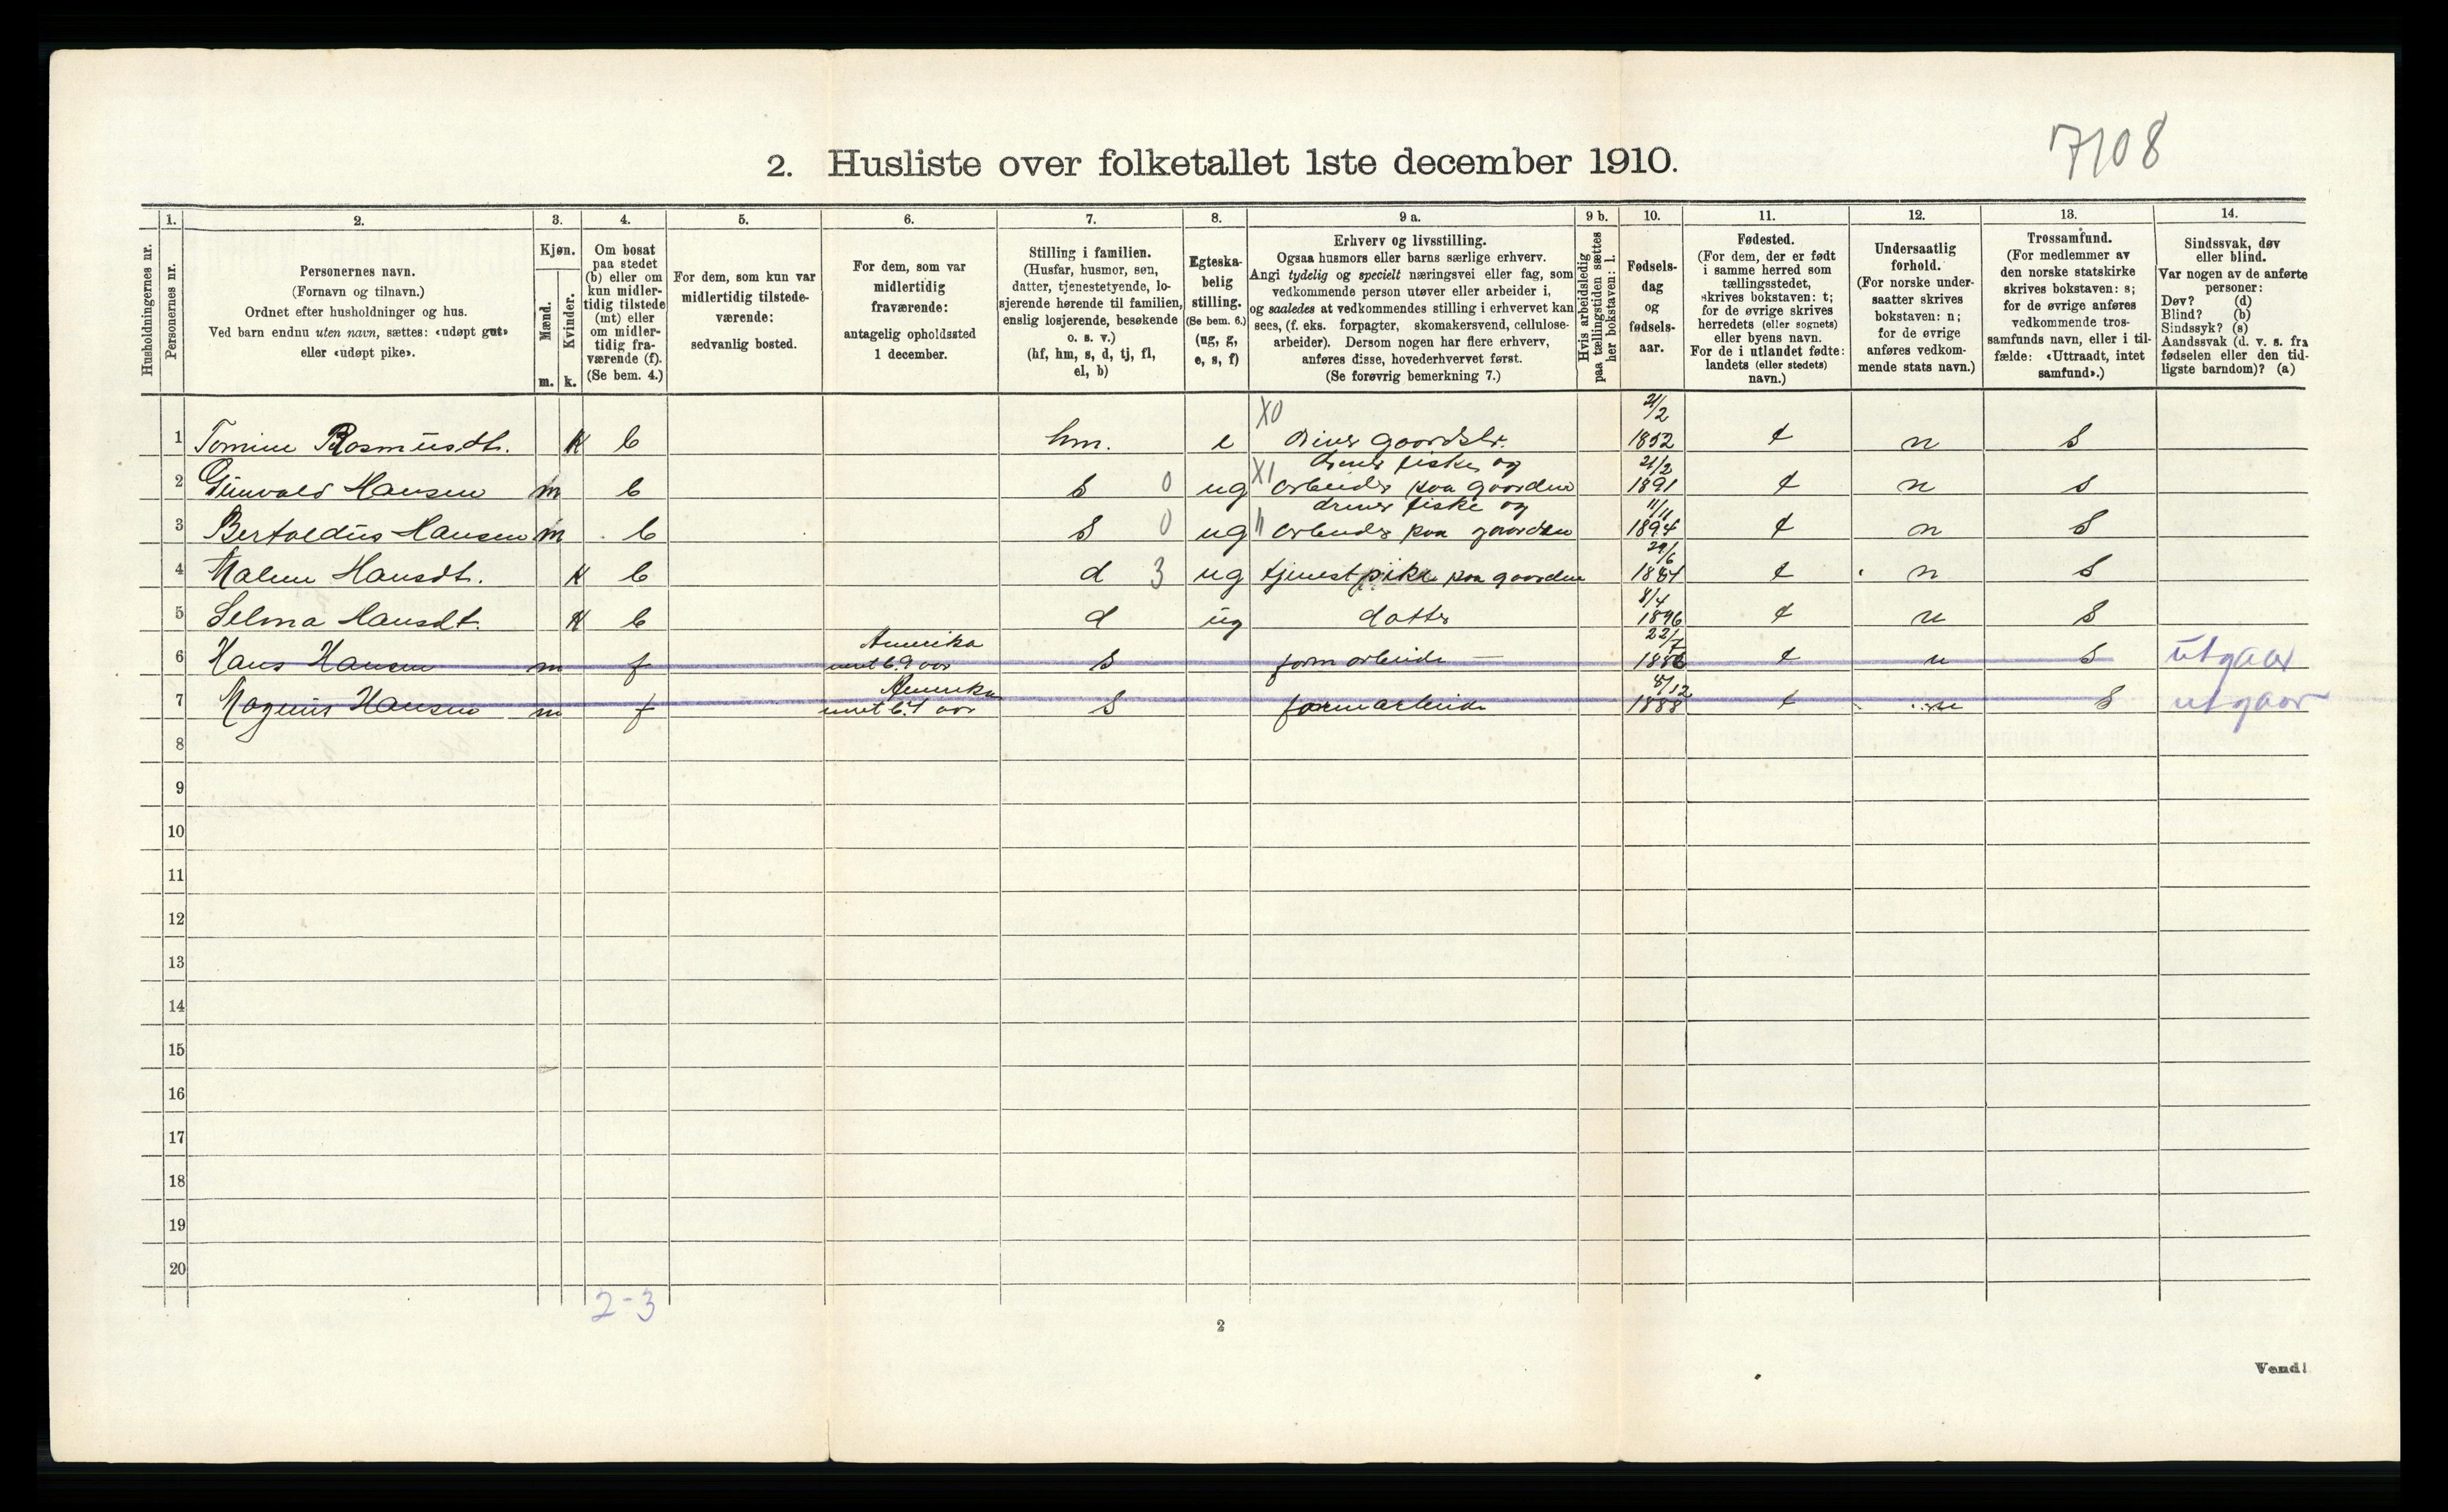 7108
2. Husliste over folketallet 1ste december 1910.
Husholdningernes nr.
1.
Personernes nr.
2.
Personernes navn.
(Fornavn og tilnavn.)
Ordnet efter husholdninger og hus.
Ved barn endnu uten navn, sættes: «udøpt gut»
eller «udøpt pike».
3.
Kjøn.
Mænd.
Kvinder.
m.
k.
4.
Om bosat
paa stedet
(b) eller om
kun midler-
tidig tilstede
(mt) eller
om midler-
tidig fra-
værende (f).
(Se bem. 4.)
5.
For dem, som kun var
midlertidig tilstede-
værende:
sedvanlig bosted.
6.
For dem, som var
midlertidig
fraværende:
antagelig opholdssted
1 december.
7.
Stilling i familien.
(Husfar, husmor, søn,
datter, tjenestetyende, lo-
sjerende hørende til familien,
enslig losjerende, besøkende
o. s. v.)
(hf, hm, s, d, tj, fl,
el, b)
8.
Egteska-
belig
stilling.
(Se bem. 6.)
(ug, g,
e, s, f)
9 a.
Erhverv og livsstilling.
Ogsaa husmors eller barns særlige erhverv.
Angi tydelig og specielt næringsvei eller fag, som
vedkommende person utøver eller arbeider i,
og saaledes at vedkommendes stilling i erhvervet kan
sees, (f. eks. forpagter, skomakersvend, cellulose-
arbeider). Dersom nogen har flere erhverv,
anføres disse, hovederhvervet først.
(Se forøvrig bemerkning 7.)
9 b.
Hvis arbeidsledig
paa tællingstiden sættes
her bokstaven: l.
10.
Fødsels-
dag
og
fødsels-
aar.
11.
Fødested.
(For dem, der er født
i samme herred som
tællingsstedet,
skrives bokstaven: t;
for de øvrige skrives
herredets (eller sognets)
eller byens navn.
For de i utlandet fødte:
landets (eller stedets)
navn.)
12.
Undersaatlig
forhold.
(For norske under-
saatter skrives
bokstaven: n;
for de øvrige
anføres vedkom-
mende stats navn.)
13.
Trossamfund.
(For medlemmer av
den norske statskirke
skrives bokstaven: s;
for de øvrige anføres
vedkommende tros-
samfunds navn, eller i til-
fælde: «Uttraadt, intet
samfund».)
14.
Sindssvak, døv
eller blind.
Var nogen av de anførte
personer:
Døv? (d)
Blind? (b)
Sindssyk? (s)
Aandssvak (d. v. s. fra
fødselen eller den tid-
ligste barndom)? (a)
1 Tomine Rasmusdt. K b hm. e X0 driver gaardsbr. 21/2 1852 t n S
2 Gunvald Hansen m b s 0 ug X1 driver fiske og arbeider paa gaarden 21/2 1891 t n s
3 Bertoldus Hansen m b S 0 ug " driver fiske og arbeider paa gaarden 11/11 1894 t n S
4 Malene Hansdt. K b d 3 ug tjenestpike paa gaarden 29/6 1884 t n S
5 Selma Hansdt. K b d ug datter 8/4 1896 t n S
6 Hans Hansen m f Amerika 9 aar S farm arbeide 22/7 1886 t n S utgaar
7 Magnus Hansen m f Amerika aar S farm arbeide 1888 t n S utgaar
8
9
10
11
12
13
14
15
16
17
18
19
20
2-3
2
Vend!